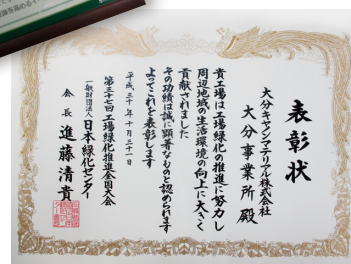 表彰状
大分キヤノンマテリアル株式会社
大分事業所 殿
貴工場は工場緑化の推進に努力し
周辺地域の生活環境の向上に大きく
貢献されました
その功績は誠に顕著なものと認められます
よってこれを表彰します
平成三十年十月三十一日
第三十七回工場緑化推進全国大会
一般財団法人 日本緑化センター
会長 進藤清貴